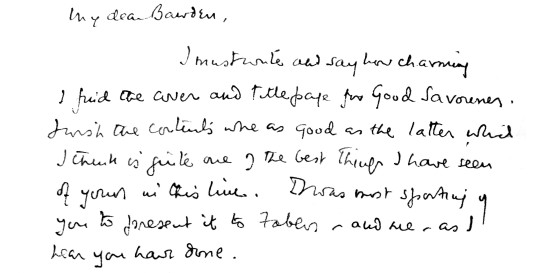 My dear Bawden,
I must write and say how charming
I find the cover and titlepage for Good Savouries.
I wish the contents were as good as the latter, which
I think is quite one of the best things I have seen
of yours in this line. It was most sporting of
you to present it to Fabers - and me - as I
hear you have done.